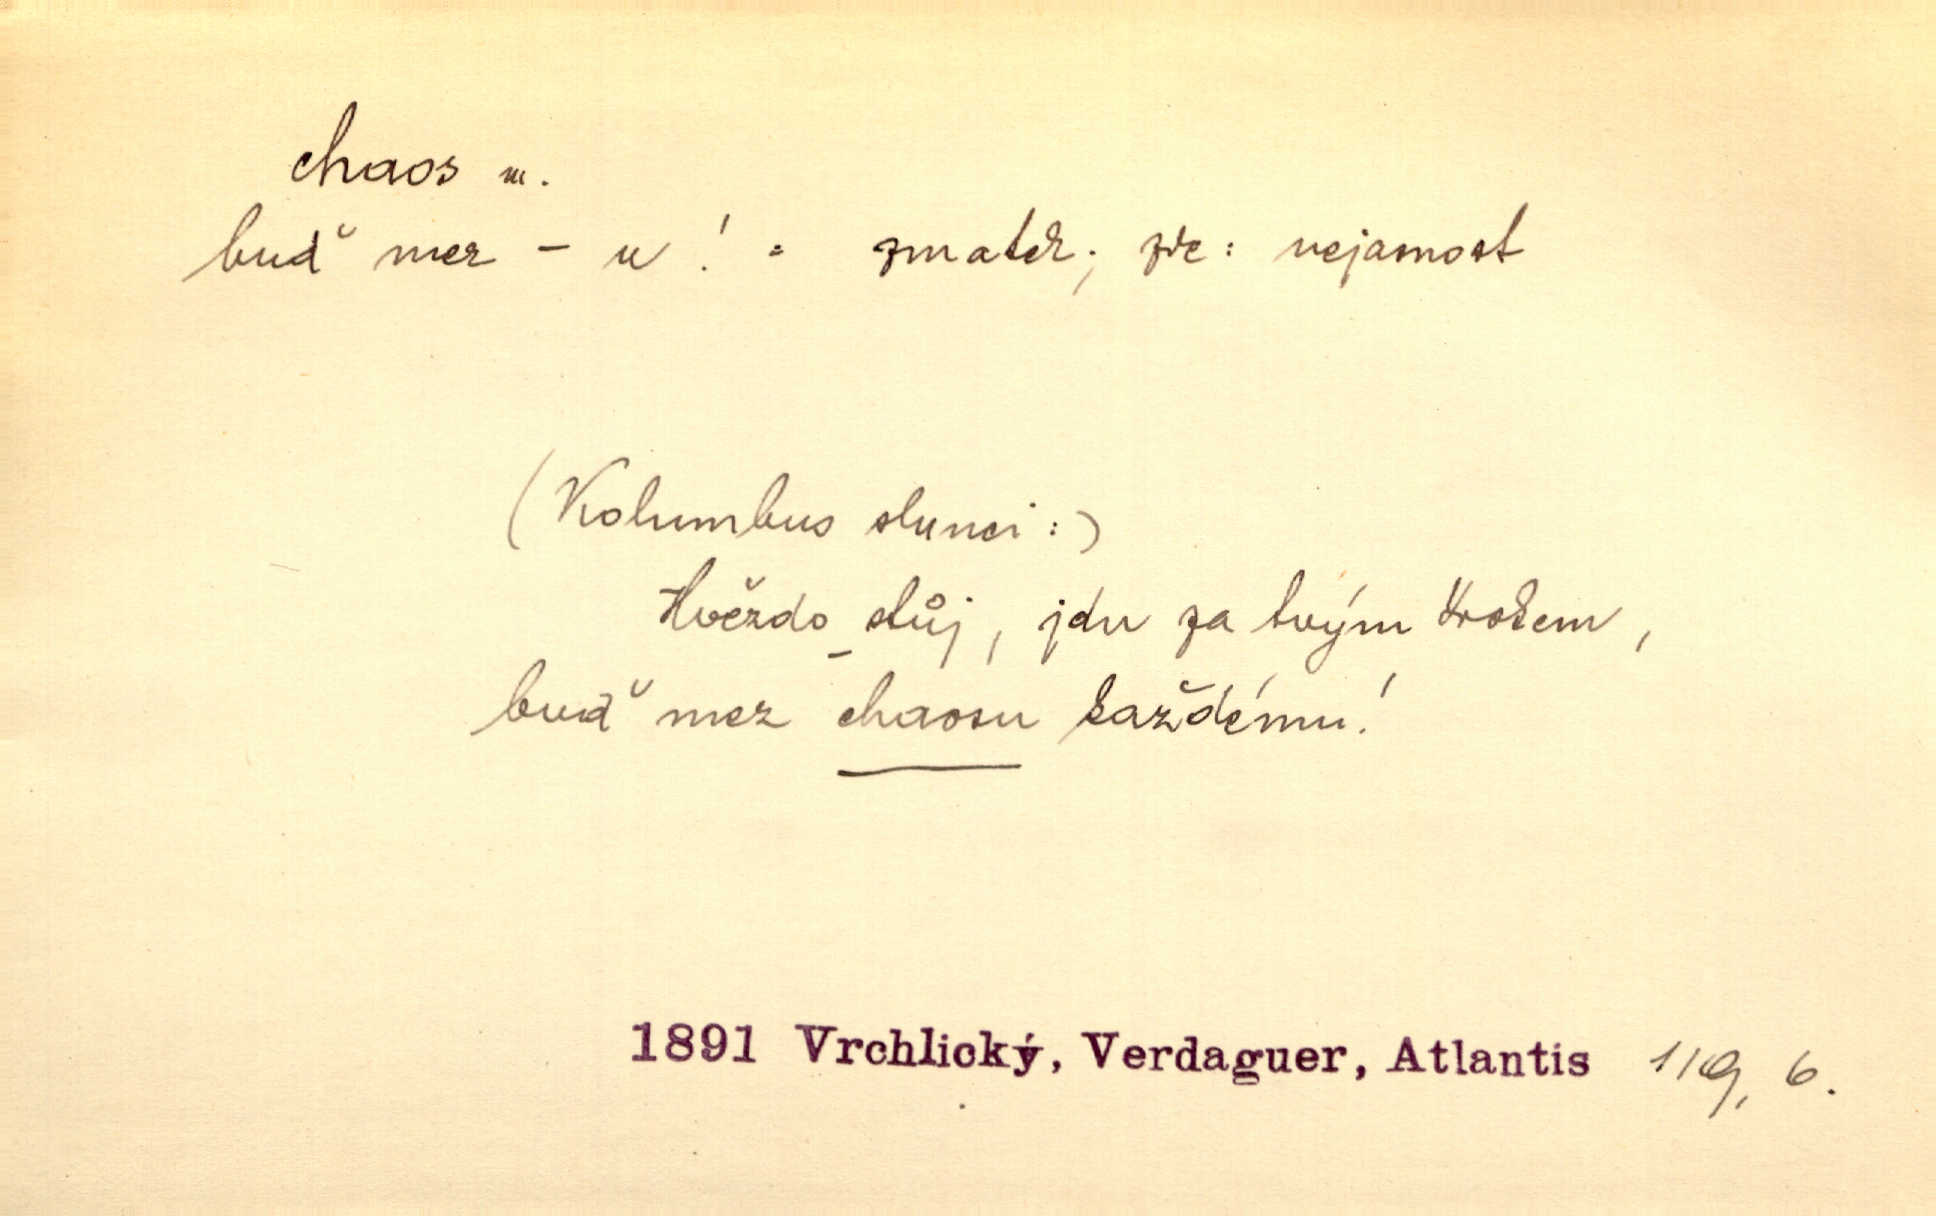 chaos m.
buď mez - u! = zmatek; zde: nejasnost
(Kolumbus slunci:)
Hvězdo stůj, jdu za tvým krokem,
buď mez chaosu každému!
1891 Vrchlický, Verdaguer, Atlantis 119, 6.